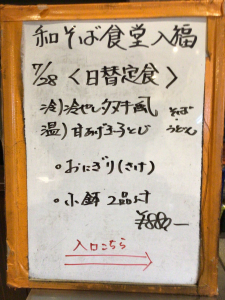 和そば食堂入福
7/28 〈日替定食〉
冷)冷やしタヌキ風 そば
温)甘あげ玉子とじ ・うどん
・おにぎり(さけ)
・小鉢 2品付
¥880ー
入口こちら